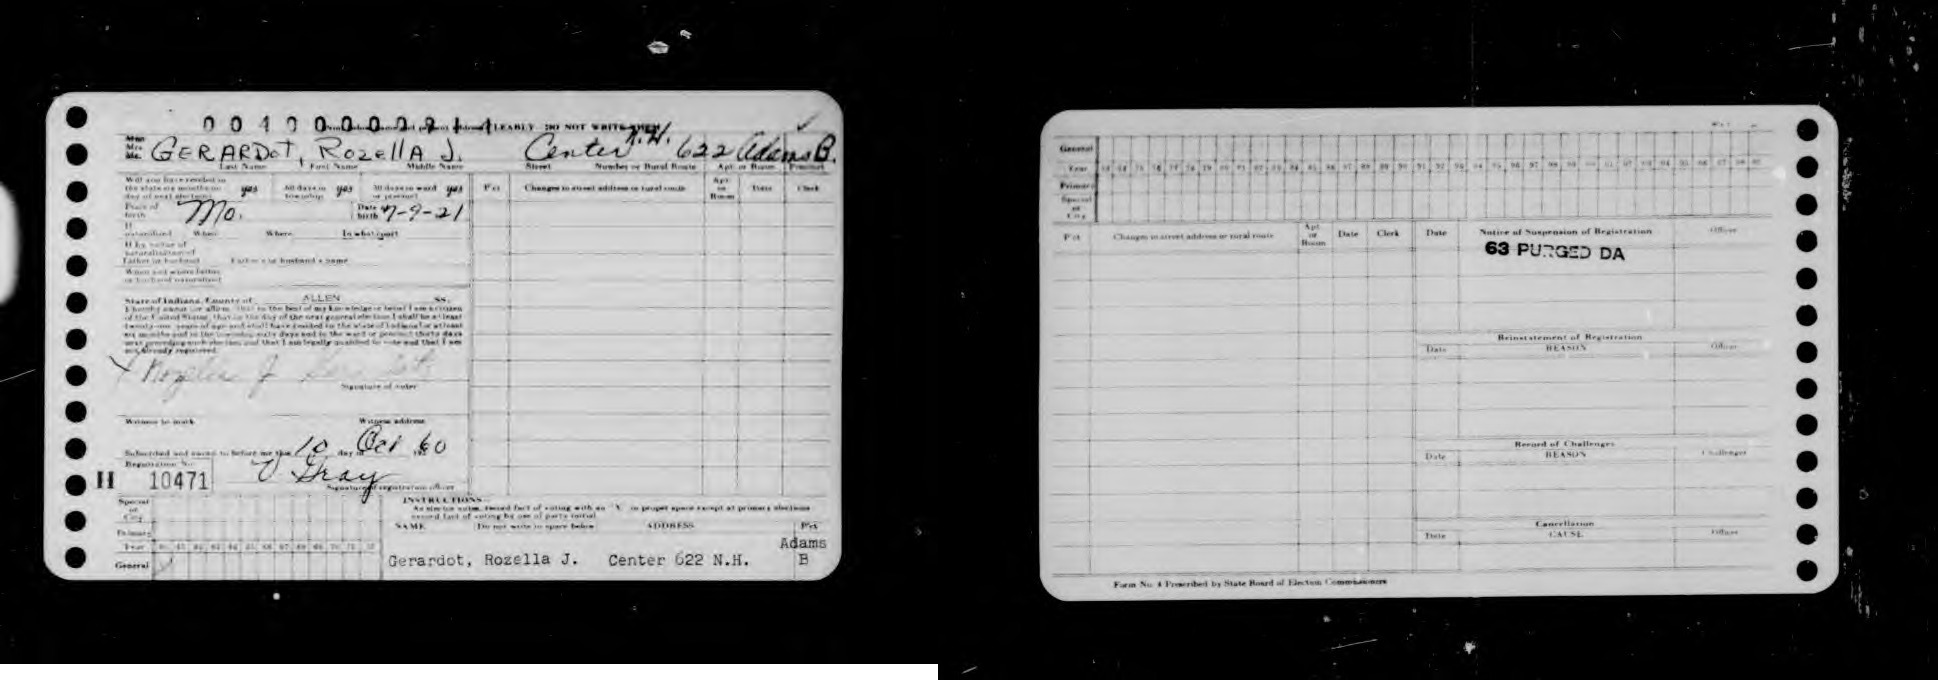 Miss
Mrs.
Mr. GERARDot, Rozella J. Center N.H. 622 Adams B.
Last Name First Name Middle Name Street Number or Rural Route Apt. or Room Precinct
Will you have resided in
the state six months on yes 60 days in yes 30 days in ward yes
day of next election township or precinct
Pct Changes in street address or rural route Apt. or Room Date Clerk
Place of birth Mo. Date birth 7-9-21
If naturalized When Where In what court
If by virtue of
naturalization of
father or husband Father's or husband's name
When and where father
or husband naturalized
State of Indiana, County of ALLEN ss.
I hereby swear (or affirm) that to the best of my knowledge or belief I am a citizen
of the United States, that on the day of the next general election I shall be at least
twenty-one years of age and shall have resided in the state of Indiana for at least
six months and in the township sixty days and in the ward or precinct thirty days
next preceding such election and that I am legally qualified to vote and that I am
not already registered.
Rozella J Gerardot
Signature of voter
Witness to mark Witness address
Subscribed and sworn to before me this 10 day of Oct 1960
Registration No.
H 10471 V Gray
Signature of registration officer
INSTRUCTIONS
As elector votes, record fact of voting with an "X" in proper space except at primary elections
record fact of voting by use of party initial
Special or City
Primary
Year
General
NAME Do not write in space below ADDRESS Pct
Gerardot, Rozella J. Center 622 N.H. Adams B
General
Year
Primary
Special or City
Pct Changes in street address or rural route Apt. or Room Date Clerk
Date Notice of Suspension of Registration Officer
63 PURGED DA
Reinstatement of Registration
Date REASON Officer
Record of Challenges
Date REASON Challenger
Cancellation
Date CAUSE Officer
Form No. 4 Prescribed by State Board of Election Commissioners